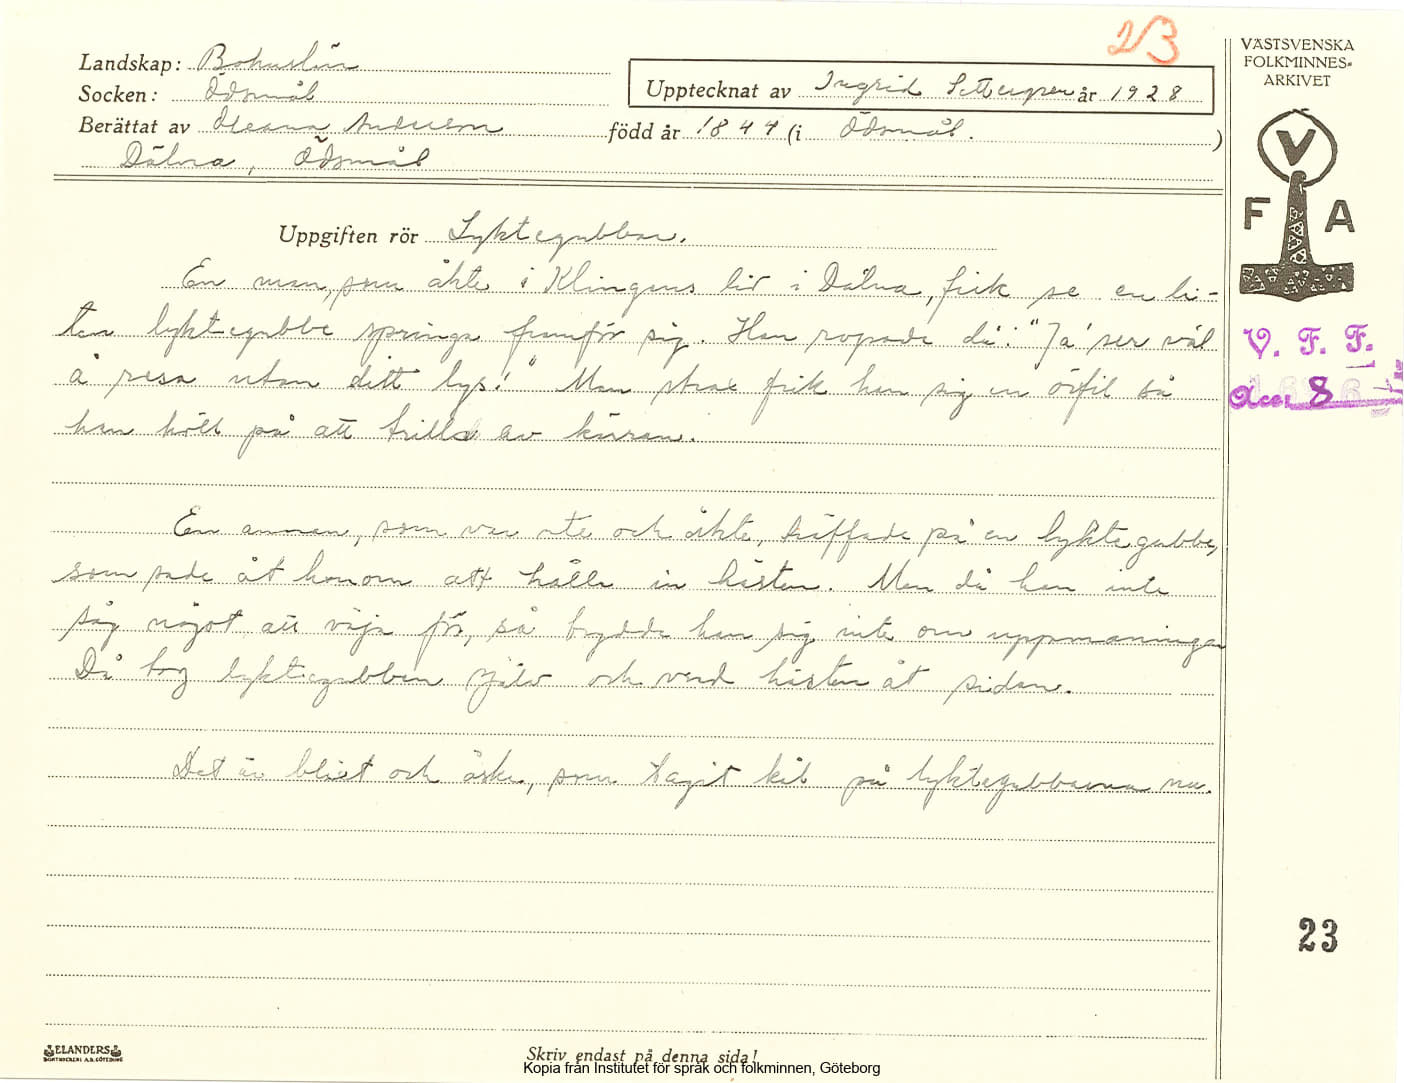 23
Landskap: Bohuslän
Socken: Ödsmål
Upptecknat av Ingrid Settergren år 1928
Berättat av Oleana Anderson född år 1847 (i Ödsmål.)
Dälna, Ödsmål
VÄSTSVENSKA
FOLKMINNES-
ARKIVET
V
F A
Uppgiften rör Lyktegubbar.
En man, som åkte i Klingens lid i Dälna, fick se en li-
ten lyktegubbe springa framför sig. Han ropade då: "Ja' ser väl
å resa utan ditt lys!" Men strax fick han sig en örfil så
han höll på att trilla av kärran.
En annan, som var ute och åkte, träffade på en lyktegubbe,
som sade åt honom att hålla in hästen. Men då han inte
såg något att väja för, så brydde han sig inte om uppmaningen
Då tog lyktegubben själv och vred hästen åt sidan.
Det är blixt och åska, som tagit kål på lyktegubbarna nu.
V. F. F.
Acc. 8
23
ELANDERS
BOKTRYCKERI A.B. GÖTEBORG
Skriv endast på denna sida!
Kopia från Institutet för språk och folkminnen, Göteborg